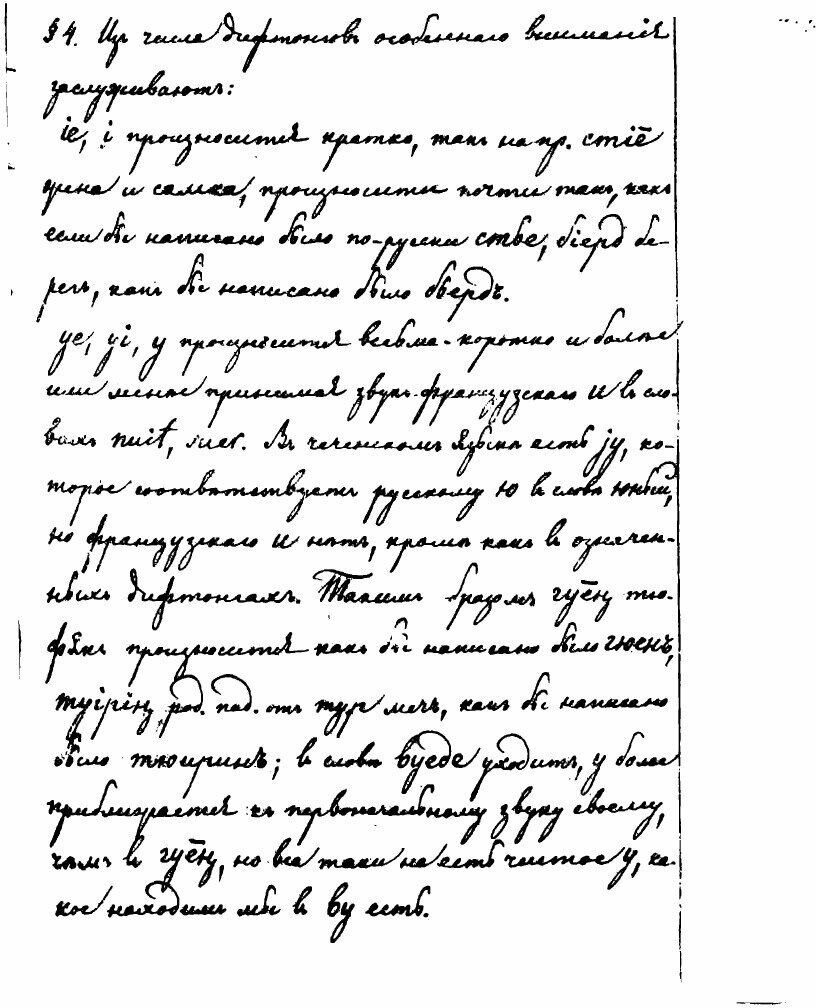 § 4. Изъ числа дифтонговъ особеннаго вниманія
заслуживаютъ:
іе, і произносится кратко, такъ напр. стіе̄
жена и самка, произносити почти такъ, какъ
если бы написано было по-русски стье, біерд бе-
регъ, какъ бы написано было бьердъ.
уе, уі, у произносится весьма коротко и более
или менее принимая звукъ французскаго u въ сло-
вахъ nuit, suer. Въ чеченскомъ языкѣ есть jу, ко-
торое соотвѣтствуетъ русскому ю въ словѣ юный,
но французскаго u нѣтъ, кромѣ какъ въ означен-
ныхъ дифтонгахъ. Такимъ образомъ гуе̄ң тю-
фякъ произносится какъ бы написано было гюенъ,
туірің род. пад. отъ тур мечъ, какъ бы написано
было тюиринъ; въ словѣ вуеде уходитъ, у более
приближается къ первоначальному звуку своему,
чѣмъ въ гуе̄ң, но все таки не есть чистое у, ка-
кое находимъ мы въ ву есть.